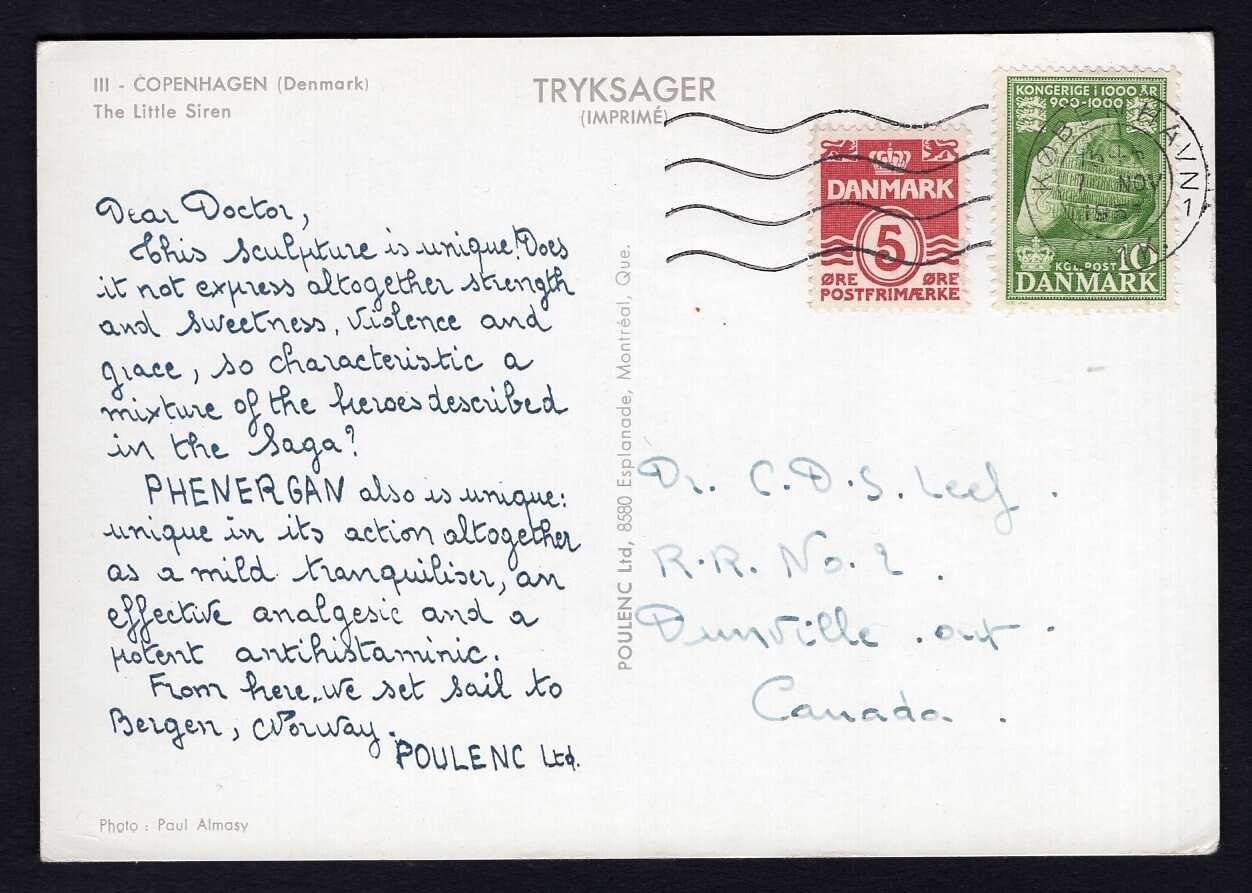 III - COPENHAGEN (Denmark)
The Little Siren
TRYKSAGER
(IMPRIMÉ)
KONGERIGE I 1000 ÅR
900-1000
KGL. POST 10
DANMARK
DANMARK
5
ØRE ØRE
POSTFRIMÆRKE
KØBENHAVN 1
1 NOV
Dear Doctor,
This sculpture is unique! Does
it not express altogether strength
and sweetness, violence and
grace, so characteristic a
mixture of the heroes described
in the Saga?
PHENERGAN also is unique:
unique in its action altogether
as a mild tranquiliser, an
effective analgesic and a
potent antihistaminic.
From here, we set sail to
Bergen, Norway.
POULENC Ltd.
Photo : Paul Almasy
POULENC Ltd, 8580 Esplanade, Montréal, Que.
Dr. C.D.S. Leef.
R.R. No. 2.
Dunville. ont.
Canada.